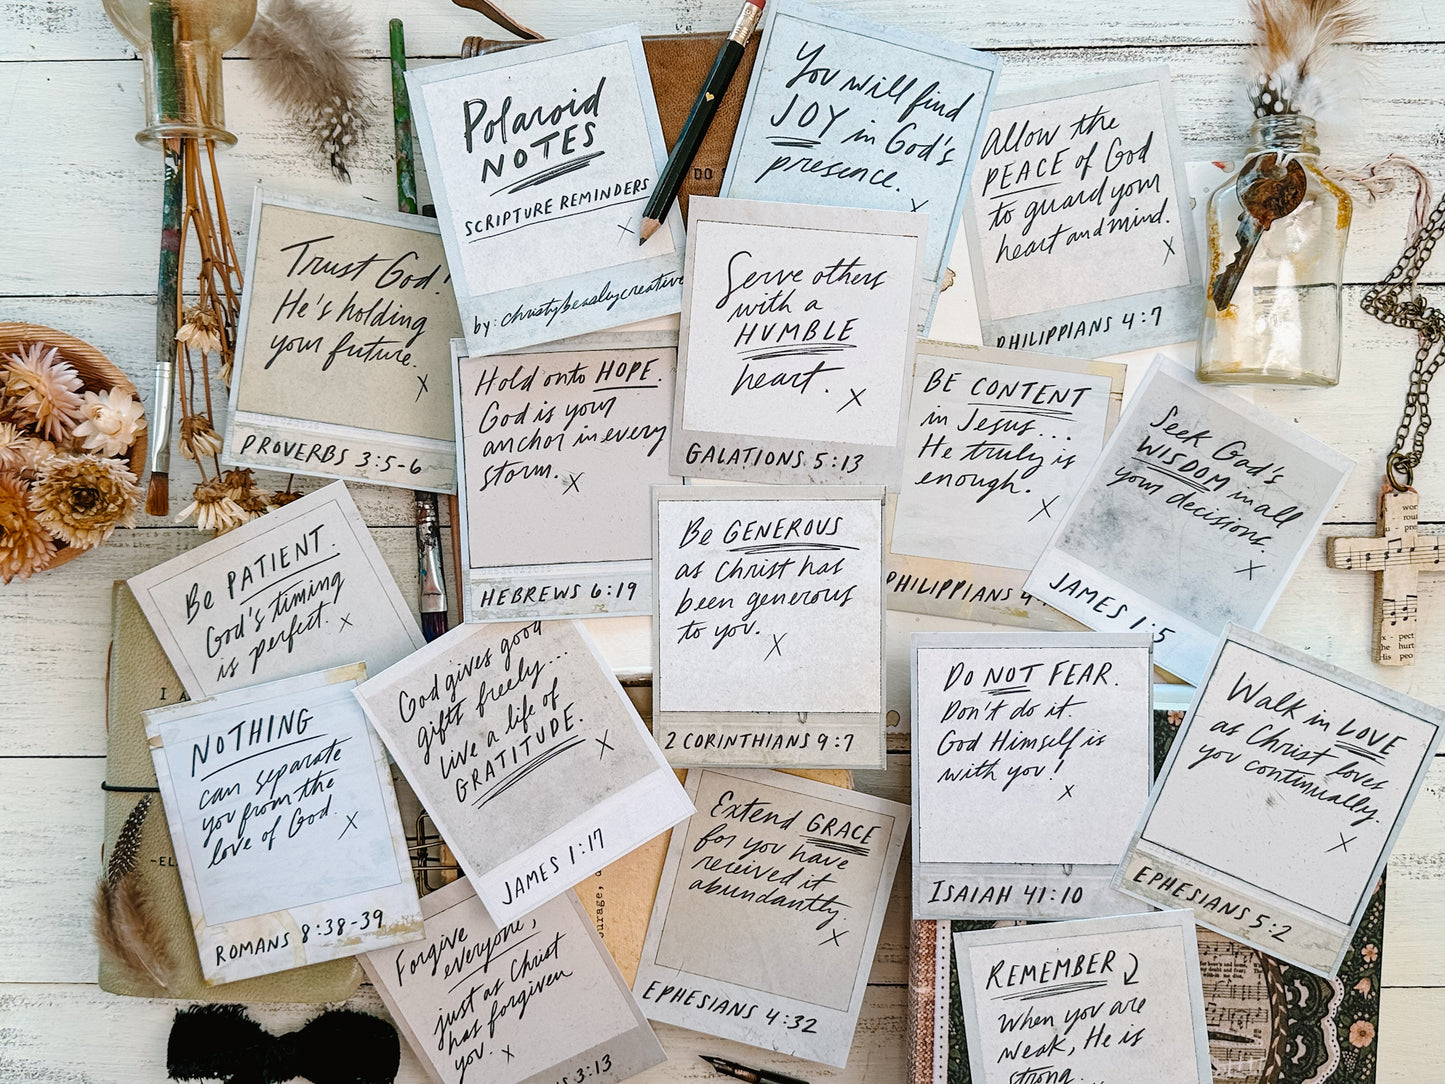 Polaroid
NOTES
SCRIPTURE REMINDERS
X
by: christybeasleycreative
You will find
JOY in God's
presence.
X
Allow the
PEACE of God
to guard your
heart and mind.
X
PHILIPPIANS 4:7
Trust God!
He's holding
your future.
X
PROVERBS 3:5-6
Serve others
with a
HUMBLE
heart.
X
GALATIONS 5:13
Hold onto HOPE.
God is your
anchor in every
storm.
X
HEBREWS 6:19
BE CONTENT
in Jesus...
He truly is
enough.
X
PHILIPPIANS 4:
Seek God's
WISDOM in all
your decisions.
X
JAMES 1:5
Be PATIENT.
God's timing
is perfect.
X
Be GENEROUS
as Christ has
been generous
to you.
X
2 CORINTHIANS 9:7
God gives good
gifts freely...
live a life of
GRATITUDE.
X
JAMES 1:17
NOTHING
can separate
you from the
love of God.
X
ROMANS 8:38-39
DO NOT FEAR.
Don't do it.
God Himself is
with you!
X
ISAIAH 41:10
Walk in LOVE
as Christ loves
you continually.
X
EPHESIANS 5:2
Extend GRACE
for you have
received it
abundantly.
X
EPHESIANS 4:32
Forgive
everyone,
just as Christ
has forgiven
you.
X
3:13
REMEMBER
When you are
weak, He is
strong.
DO
I A
-EL
ourage,
wor
rou
u - pre
x - pect
he hurt
His peo